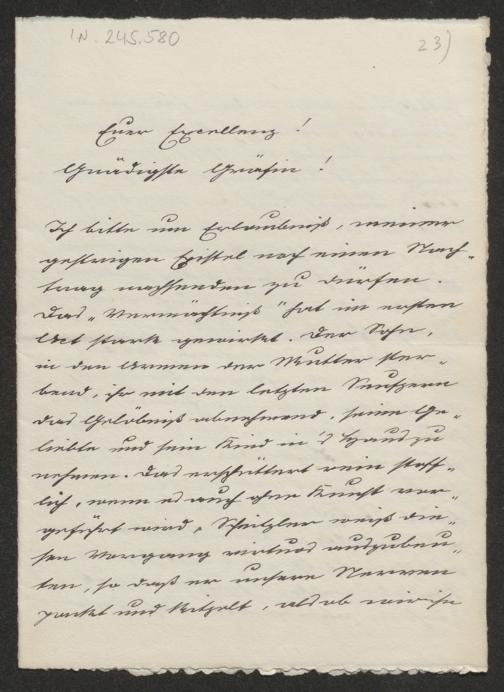 IN. 245.580
23)
Euer Excellenz!
Gnädigste Gräfin!
Ich bitte um Erlaubniß, meiner
gestrigen Epistel noch einen Nach-
trag nachsenden zu dürfen.
Das „Vermächtniß“ hat im ersten
Act stark gewirkt. Der Sohn,
in den Armen der Mutter ster-
bend, ihr mit den letzten Seufzern
das Gelöbniß abnehmend, seine Ge-
liebte und sein Kind in's Haus zu
nehmen. Das erschüttert rein stoff-
lich, wenn es auch ohne Kunst vor-
geführt wird. Schnitzler weiß die-
sen Vorgang virtuos auszubeu-
ten, so daß er unsere Nerven
packt und kitzelt, als ob wir ihn